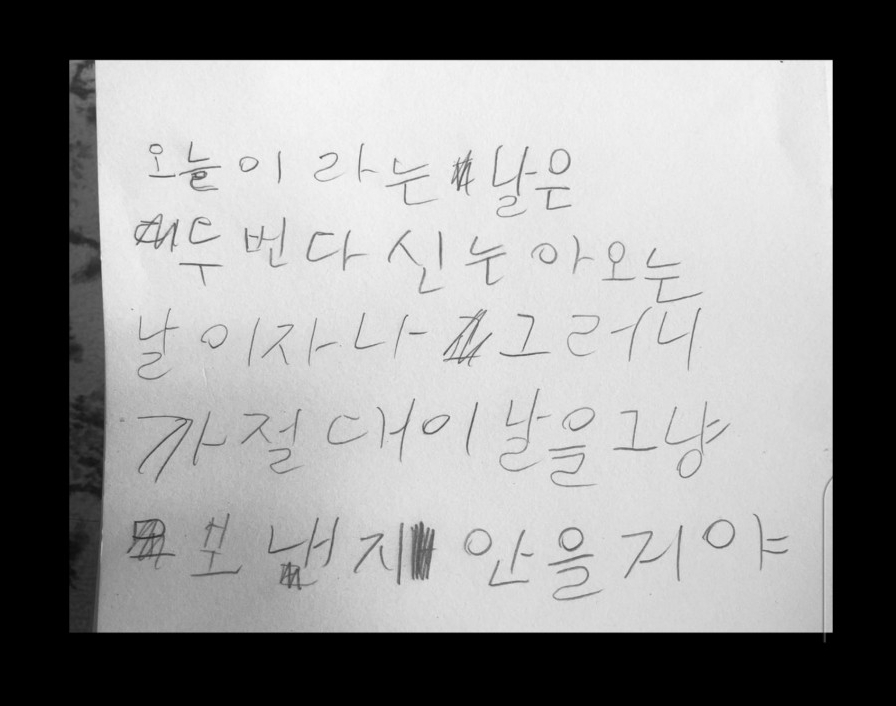 오늘이라는 날은
두번 다신 는아오는
날이자나 그러니
까 절대 이날을 그냥
보내지 안을거야